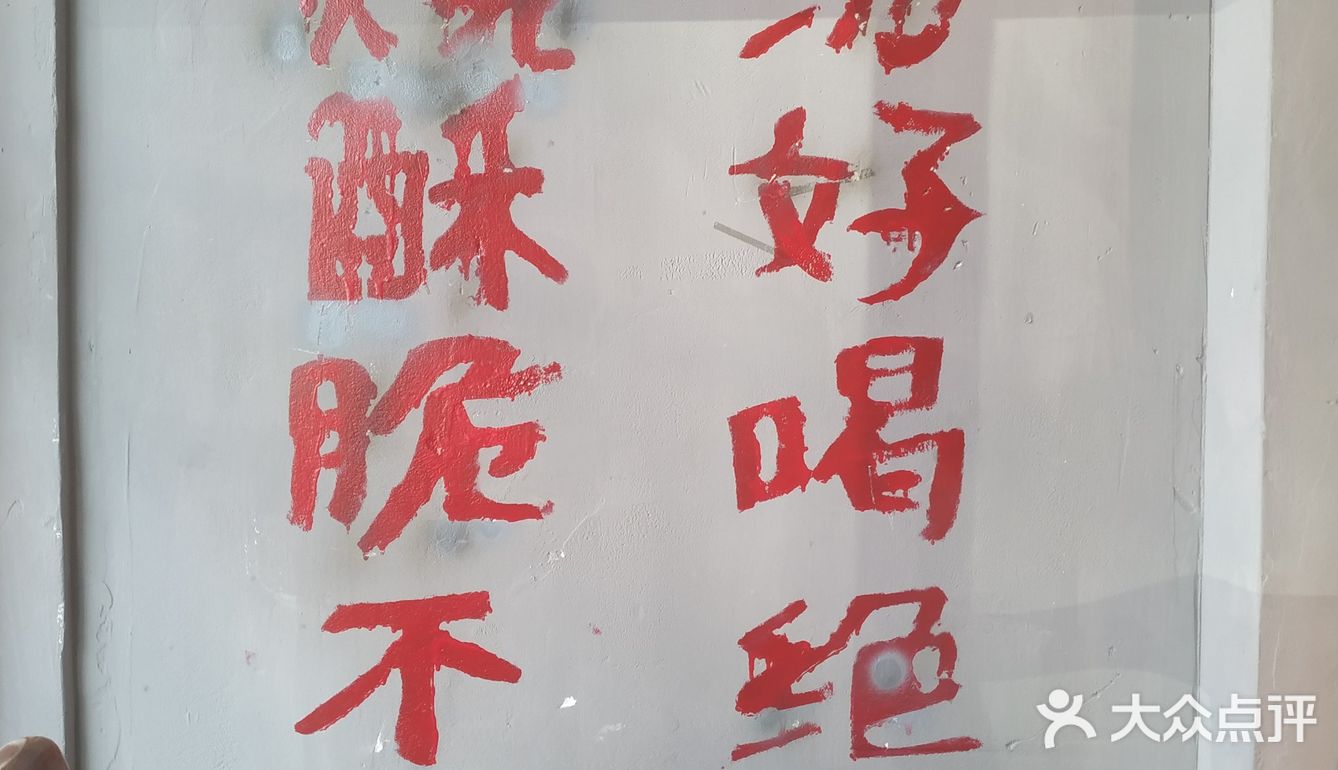 好喝绝
酥脆不
大众点评